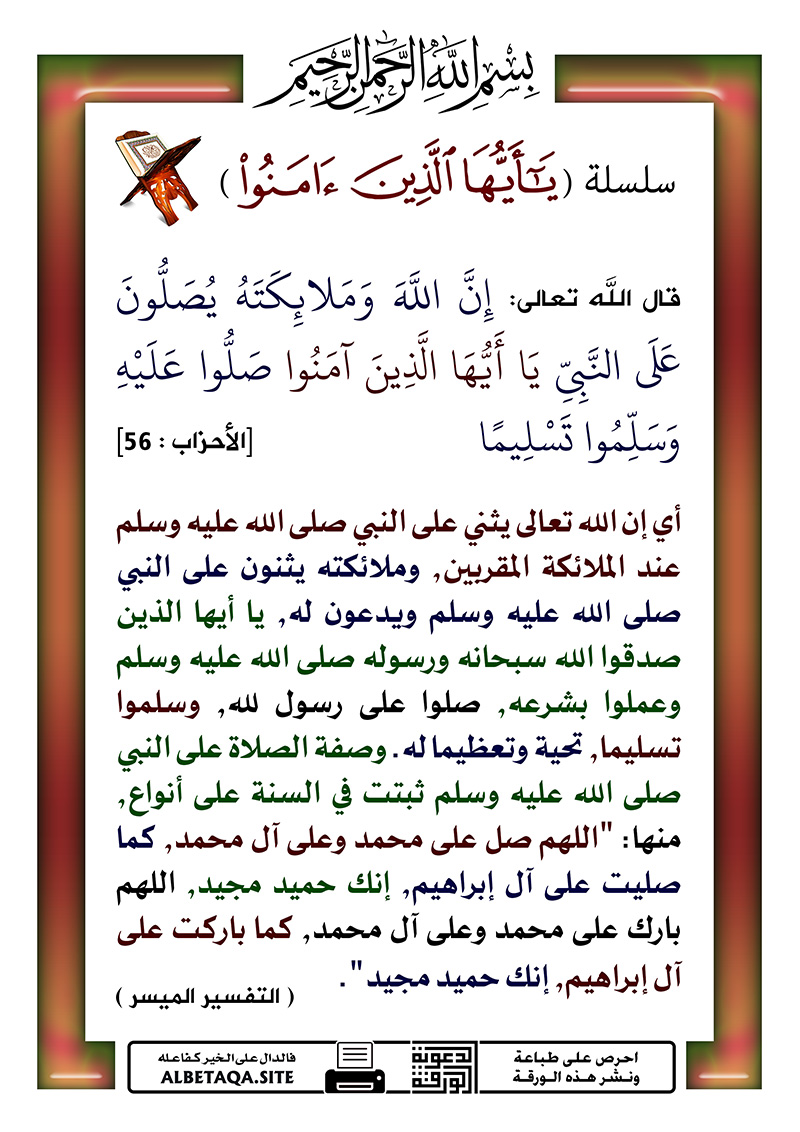 بِسْمِ اللَّهِ الرَّحْمَٰنِ الرَّحِيمِ
سلسلة (يَـٰٓأَيُّهَا ٱلَّذِينَ ءَامَنُوا۟)
قال اللَّه تعالى: إِنَّ اللَّهَ وَمَلائِكَتَهُ يُصَلُّونَ
عَلَى النَّبِيِّ يَا أَيُّهَا الَّذِينَ آمَنُوا صَلُّوا عَلَيْهِ
وَسَلِّمُوا تَسْلِيمًا [الأحزاب : 56]
أي إن الله تعالى يثني على النبي صلى الله عليه وسلم
عند الملائكة المقربين, وملائكته يثنون على النبي
صلى الله عليه وسلم ويدعون له, يا أيها الذين
صدقوا الله سبحانه ورسوله صلى الله عليه وسلم
وعملوا بشرعه, صلوا على رسول لله, وسلموا
تسليما, تحية وتعظيما له. وصفة الصلاة على النبي
صلى الله عليه وسلم ثبتت في السنة على أنواع,
منها: "اللهم صل على محمد وعلى آل محمد, كما
صليت على آل إبراهيم, إنك حميد مجيد, اللهم
بارك على محمد وعلى آل محمد, كما باركت على
آل إبراهيم, إنك حميد مجيد".
( التفسير الميسر )
احرص على طباعة
ونشر هذه الورقة
الورقة
الدعوية
فالدال على الخير كفاعله
ALBETAQA.SITE